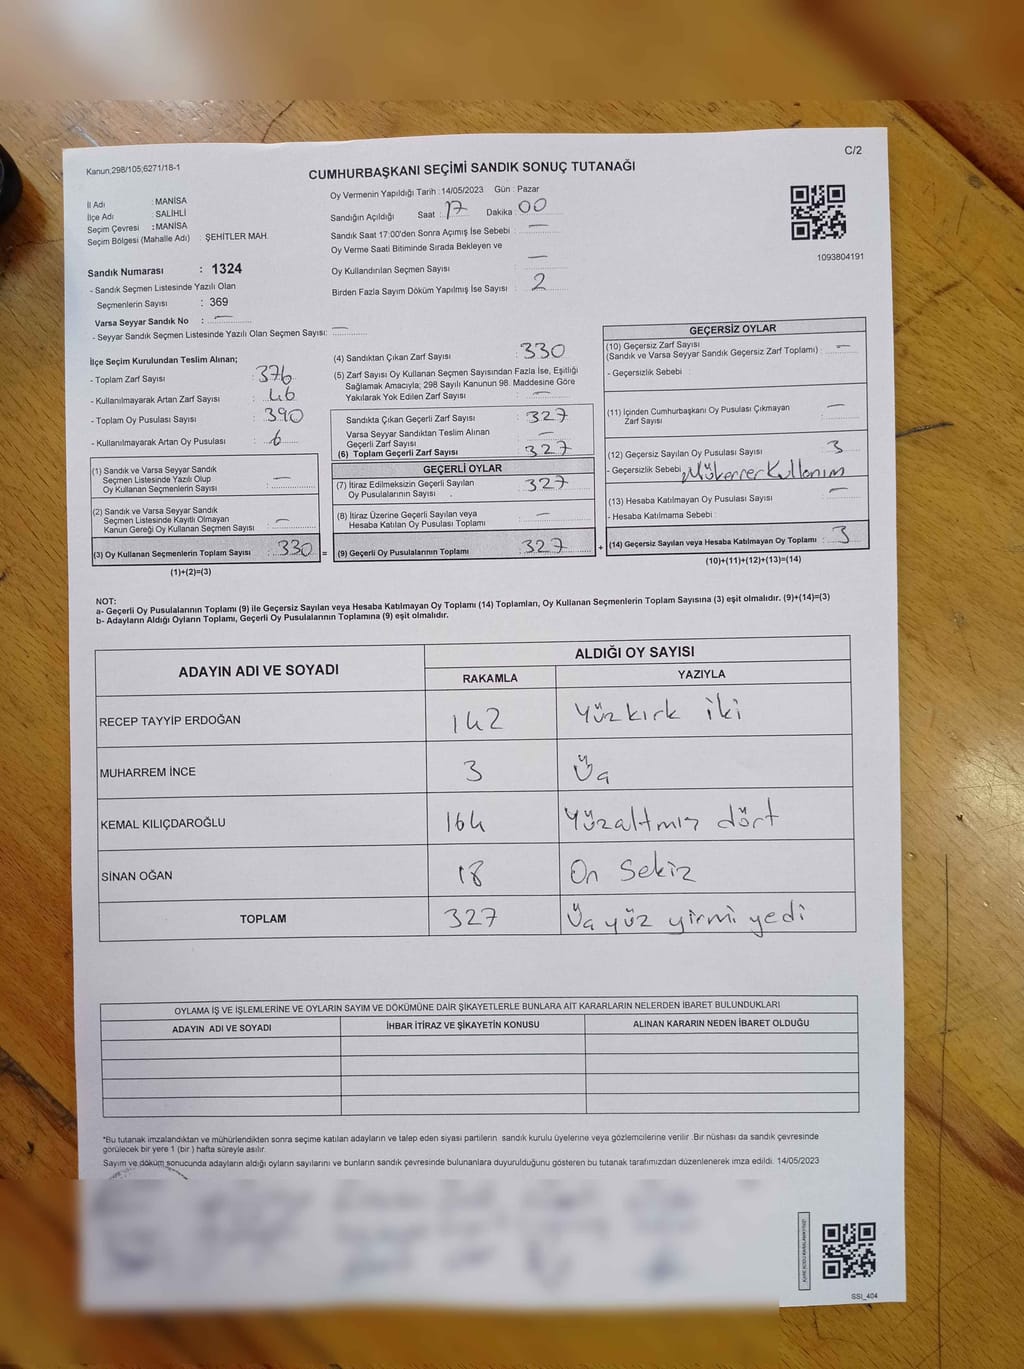 C/2
Kanun,298/105;6271/18-1
CUMHURBAŞKANI SEÇİMİ SANDIK SONUÇ TUTANAĞI
İl Adı : MANİSA
İlçe Adı : SALİHLİ
Seçim Çevresi : MANİSA
Seçim Bölgesi (Mahalle Adı) : ŞEHİTLER MAH.
Sandık Numarası : 1324
- Sandık Seçmen Listesinde Yazılı Olan
Seçmenlerin Sayısı : 369
Varsa Seyyar Sandık No : —
- Seyyar Sandık Seçmen Listesinde Yazılı Olan Seçmen Sayısı: —
Oy Vermenin Yapıldığı Tarih : 14/05/2023 Gün : Pazar
Sandığın Açıldığı Saat : 17 Dakika : 00
Sandık Saat 17:00'den Sonra Açımış İse Sebebi : —
Oy Verme Saati Bitiminde Sırada Bekleyen ve
Oy Kullandırılan Seçmen Sayısı —
Birden Fazla Sayım Döküm Yapılmış İse Sayısı : 2
1093804191
İlçe Seçim Kurulundan Teslim Alınan;
- Toplam Zarf Sayısı : 376
- Kullanılmayarak Artan Zarf Sayısı : 46
- Toplam Oy Pusulası Sayısı : 390
- Kullanılmayarak Artan Oy Pusulası : 6
(1) Sandık ve Varsa Seyyar Sandık
Seçmen Listesinde Yazılı Olup
Oy Kullanan Seçmenlerin Sayısı : —
(2) Sandık ve Varsa Seyyar Sandık
Seçmen Listesinde Kayıtlı Olmayan
Kanun Gereği Oy Kullanan Seçmen Sayısı : —
(3) Oy Kullanan Seçmenlerin Toplam Sayısı : 330 =
(1)+(2)=(3)
(4) Sandıktan Çıkan Zarf Sayısı : 330
(5) Zarf Sayısı Oy Kullanan Seçmen Sayısından Fazla İse, Eşitliği
Sağlamak Amacıyla; 298 Sayılı Kanunun 98. Maddesine Göre
Yakılarak Yok Edilen Zarf Sayısı : —
Sandıkta Çıkan Geçerli Zarf Sayısı : 327
Varsa Seyyar Sandıktan Teslim Alınan
Geçerli Zarf Sayısı : —
(6) Toplam Geçerli Zarf Sayısı : 327
GEÇERLİ OYLAR
(7) İtiraz Edilmeksizin Geçerli Sayılan
Oy Pusulalarının Sayısı : 327
(8) İtiraz Üzerine Geçerli Sayılan veya
Hesaba Katılan Oy Pusulası Toplamı : —
(9) Geçerli Oy Pusulalarının Toplamı : 327 +
GEÇERSİZ OYLAR
(10) Geçersiz Zarf Sayısı
(Sandık ve Varsa Seyyar Sandık Geçersiz Zarf Toplamı) : —
- Geçersizlik Sebebi :
(11) İçinden Cumhurbaşkanı Oy Pusulası Çıkmayan
Zarf Sayısı : —
(12) Geçersiz Sayılan Oy Pusulası Sayısı : 3
- Geçersizlik Sebebi : Mükerrer Kullanım
(13) Hesaba Katılmayan Oy Pusulası Sayısı : —
- Hesaba Katılmama Sebebi :
(14) Geçersiz Sayılan veya Hesaba Katılmayan Oy Toplamı : 3
(10)+(11)+(12)+(13)=(14)
NOT:
a- Geçerli Oy Pusulalarının Toplamı (9) ile Geçersiz Sayılan veya Hesaba Katılmayan Oy Toplamı (14) Toplamları, Oy Kullanan Seçmenlerin Toplam Sayısına (3) eşit olmalıdır. (9)+(14)=(3)
b- Adayların Aldığı Oyların Toplamı, Geçerli Oy Pusulalarının Toplamına (9) eşit olmalıdır.
ADAYIN ADI VE SOYADI ALDIĞI OY SAYISI
RAKAMLA YAZIYLA
RECEP TAYYİP ERDOĞAN 142 Yüzkırk iki
MUHARREM İNCE 3 Üç
KEMAL KILIÇDAROĞLU 164 Yüzaltmış dört
SİNAN OĞAN 18 On Sekiz
TOPLAM 327 Üç yüz yirmi yedi
OYLAMA İŞ VE İŞLEMLERİNE VE OYLARIN SAYIM VE DÖKÜMÜNE DAİR ŞİKAYETLERLE BUNLARA AİT KARARLARIN NELERDEN İBARET BULUNDUKLARI
ADAYIN ADI VE SOYADI İHBAR İTİRAZ VE ŞİKAYETİN KONUSU ALINAN KARARIN NEDEN İBARET OLDUĞU
*Bu tutanak imzalandıktan ve mühürlendikten sonra seçime katılan adayların ve talep eden siyasi partilerin sandık kurulu üyelerine veya gözlemcilerine verilir .Bir nüshası da sandık çevresinde
görülecek bir yere 1 (bir ) hafta süreyle asılır.
Sayım ve döküm sonucunda adayların aldığı oyların sayılarını ve bunların sandık çevresinde bulunanlara duyurulduğunu gösteren bu tutanak tarafımızdan düzenlenerek imza edildi. 14/05/2023
SSI_404